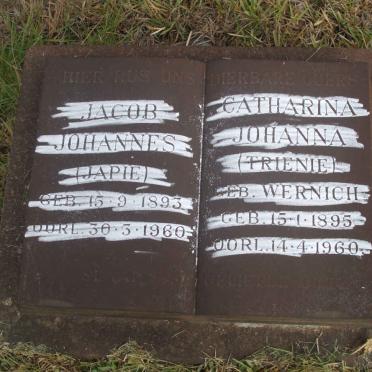 HIER RUS ONS DIERBARE OUERS
JACOB
JOHANNES
(JAPIE)
GEB. 15.9.1893
OORL. 30.3.1960
CATHARINA
JOHANNA
(TRIENIE)
GEB. WERNICH
GEB. 15.1.1895
OORL. 14.4.1960